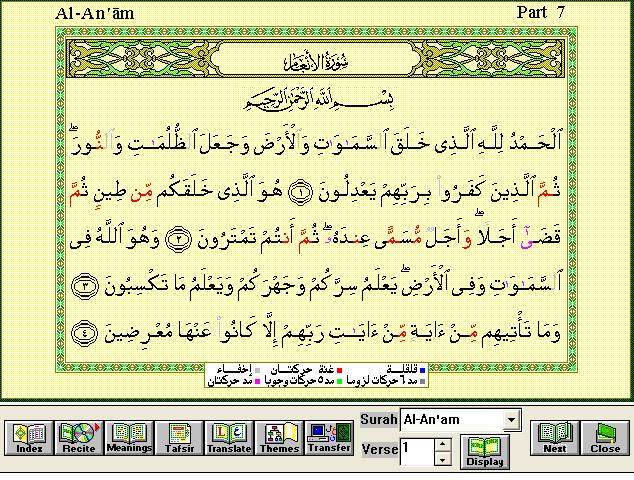 Al-An'ām Part 7
سُورَةُ الأَنْعَامِ
بِسْمِ ٱللَّهِ ٱلرَّحْمَٰنِ ٱلرَّحِيمِ
ٱلْحَمْدُ لِلَّهِ ٱلَّذِى خَلَقَ ٱلسَّمَٰوَٰتِ وَٱلْأَرْضَ وَجَعَلَ ٱلظُّلُمَٰتِ وَٱلنُّورَ ۖ
ثُمَّ ٱلَّذِينَ كَفَرُوا۟ بِرَبِّهِمْ يَعْدِلُونَ ١ هُوَ ٱلَّذِى خَلَقَكُم مِّن طِينٍ ثُمَّ
قَضَىٰٓ أَجَلًا ۖ وَأَجَلٌ مُّسَمًّى عِندَهُۥ ۖ ثُمَّ أَنتُمْ تَمْتَرُونَ ٢ وَهُوَ ٱللَّهُ فِى
ٱلسَّمَٰوَٰتِ وَفِى ٱلْأَرْضِ ۖ يَعْلَمُ سِرَّكُمْ وَجَهْرَكُمْ وَيَعْلَمُ مَا تَكْسِبُونَ ٣
وَمَا تَأْتِيهِم مِّنْ ءَايَةٍ مِّنْ ءَايَٰتِ رَبِّهِمْ إِلَّا كَانُوا۟ عَنْهَا مُعْرِضِينَ ٤
قلقلة غنة حركتان إخفاء
مد ٦ حركات لزوما مد ٥ حركات وجوبا مد حركتان
Surah Al-An'am
Index Recite Meanings Tafsir Translate Themes Transfer Verse 1 Display Next Close